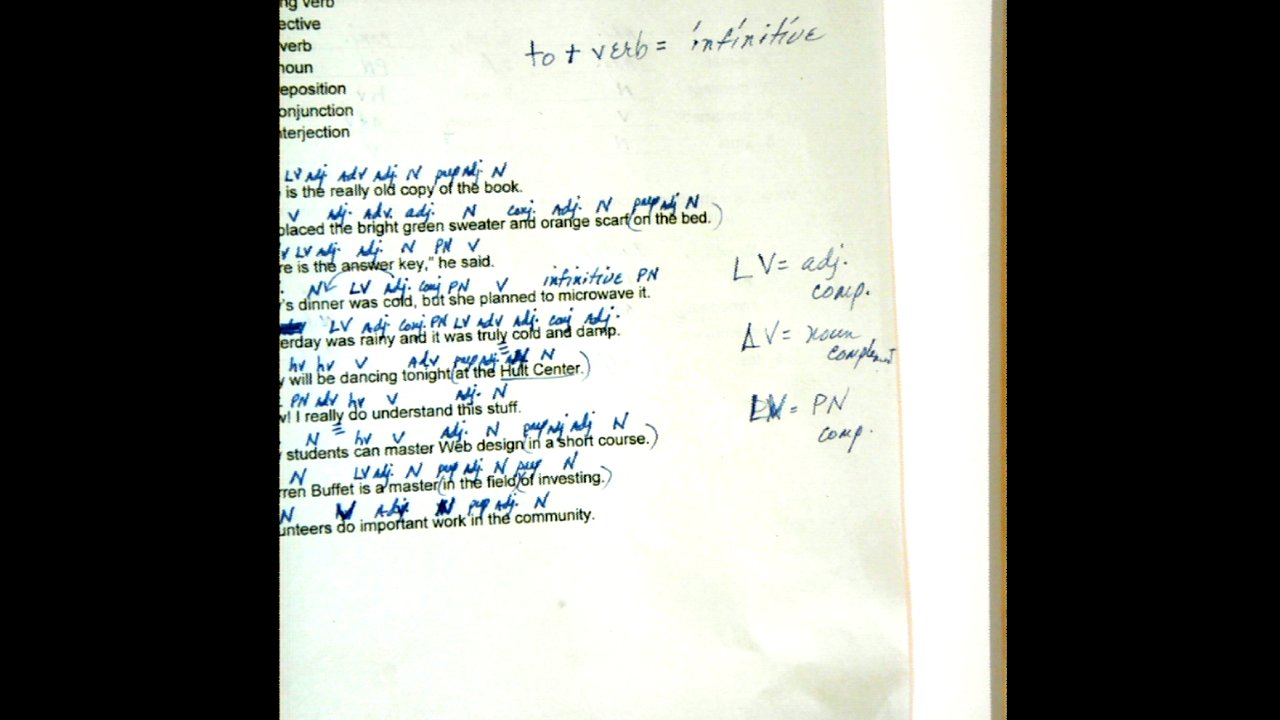 ng verb
ective
verb
noun
eposition
onjunction
nterjection
to + verb = infinitive
LV adj. Adv adj. N prep adj. N
is the really old copy of the book.
V adj. Adv. adj. N conj. Adj. N prep adj N
placed the bright green sweater and orange scarf (on the bed.)
V LV adj. Adj. N PN V
re is the answer key," he said.
N LV Adj. conj PN V infinitive PN
's dinner was cold, but she planned to microwave it.
LV Adj conj. PN LV Adv Adj. conj Adj.
erday was rainy and it was truly cold and damp.
hv hv V Adv prep adj. N
will be dancing tonight (at the Hult Center.)
PN adv hv V adj. N
w! I really do understand this stuff.
N hv V Adj. N prep adj adj N
students can master Web design (in a short course.)
N LV Adj. N prep adj. N prep N
rren Buffet is a master (in the field) (of investing.)
N V Adj. N prep Adj. N
unteers do important work in the community.
LV = adj.
comp.
LV = noun
complement
LV = PN
comp.